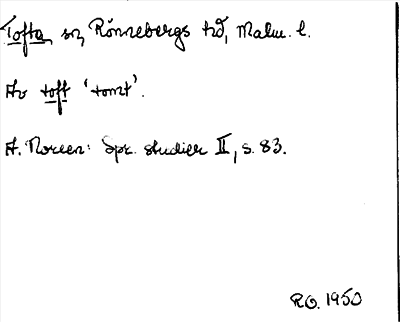 Tofta sn, Rönnebergs hd, Malm. l.
Av toft 'tomt'.
A. Noreen: Spr. studier II, s. 83.
RO. 1950